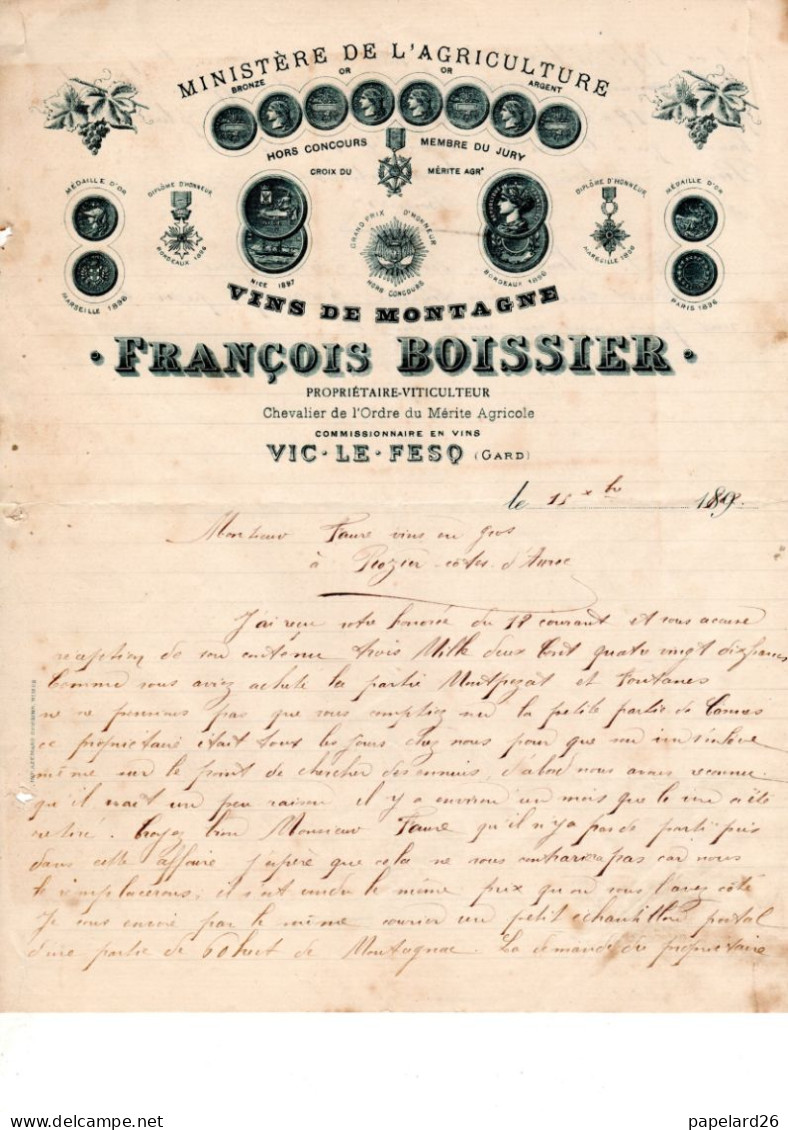 MINISTÈRE DE L'AGRICULTURE
BRONZE OR OR ARGENT
HORS CONCOURS MEMBRE DU JURY
CROIX DU MÉRITE AGRE
MÉDAILLE D'OR
MARSEILLE 1896
DIPLÔME D'HONNEUR
BORDEAUX 1896
NICE 1897
GRAND PRIX D'HONNEUR
HORS CONCOURS
BORDEAUX 1896
DIPLÔME D'HONNEUR
MARSEILLE 1896
MÉDAILLE D'OR
PARIS 1896
VINS DE MONTAGNE
FRANÇOIS BOISSIER
PROPRIÉTAIRE-VITICULTEUR
Chevalier de l'Ordre du Mérite Agricole
COMMISSIONNAIRE EN VINS
VIC-LE-FESQ (GARD)
le 189
Monsieur Faure vins en gros
à
J'ai reçu votre honorée du 18 courant et vous accuse
réception de son contenu trois Mille deux Cent quatre vingt dix francs
Comme vous aviez acheté la partie Montpezat et Fontanes
ne pensions pas que vous comptiez sur la petite partie de Cannes
ce propriétaire était tous les jours chez nous pour que
même sur le point de chercher des ennuis, nous avons reconnu
qu'il avait un peu raison il y a environ un mois que le vin a été
retiré. Croyez bien Monsieur Faure qu'il n'y a pas de parti pris
dans cette affaire j'espère que cela ne vous contrariera pas car nous
le remplacerons,
Je vous envoie par le même courier un petit échantillon postal
d'une partie de 60 hect de Montagnac. La demande du propriétaire
papelard26